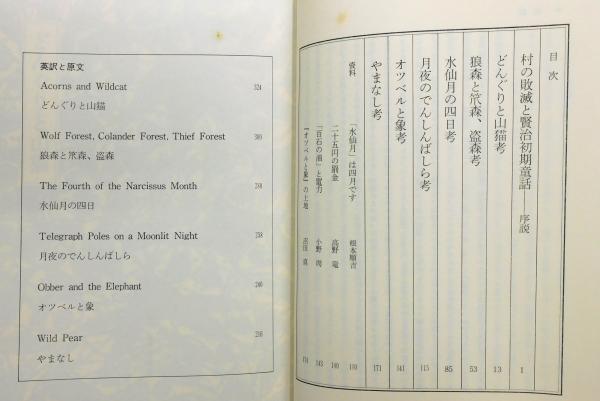 目次
村の敗滅と賢治初期童話 序説 1
どんぐりと山猫考 13
狼森と笊森、盗森考 53
水仙月の四日考 85
月夜のでんしんばしら考 115
オツベルと象考 141
やまなし考 171
資料
「水仙月」は四月です 根本順吉
二十五円の罰金
小野 周
『オツベルと象』の土地
英訳と原文
Acorns and Wildcat 324
どんぐりと山猫
Wolf Forest, Colander Forest, Thief Forest
狼森と笊森、盗森
The Fourth of the Narcissus Month
水仙月の四日
Telegraph Poles on a Moonlit Night
月夜のでんしんばしら
Obber and the Elephant
オツベルと象
Wild Pear
やまなし